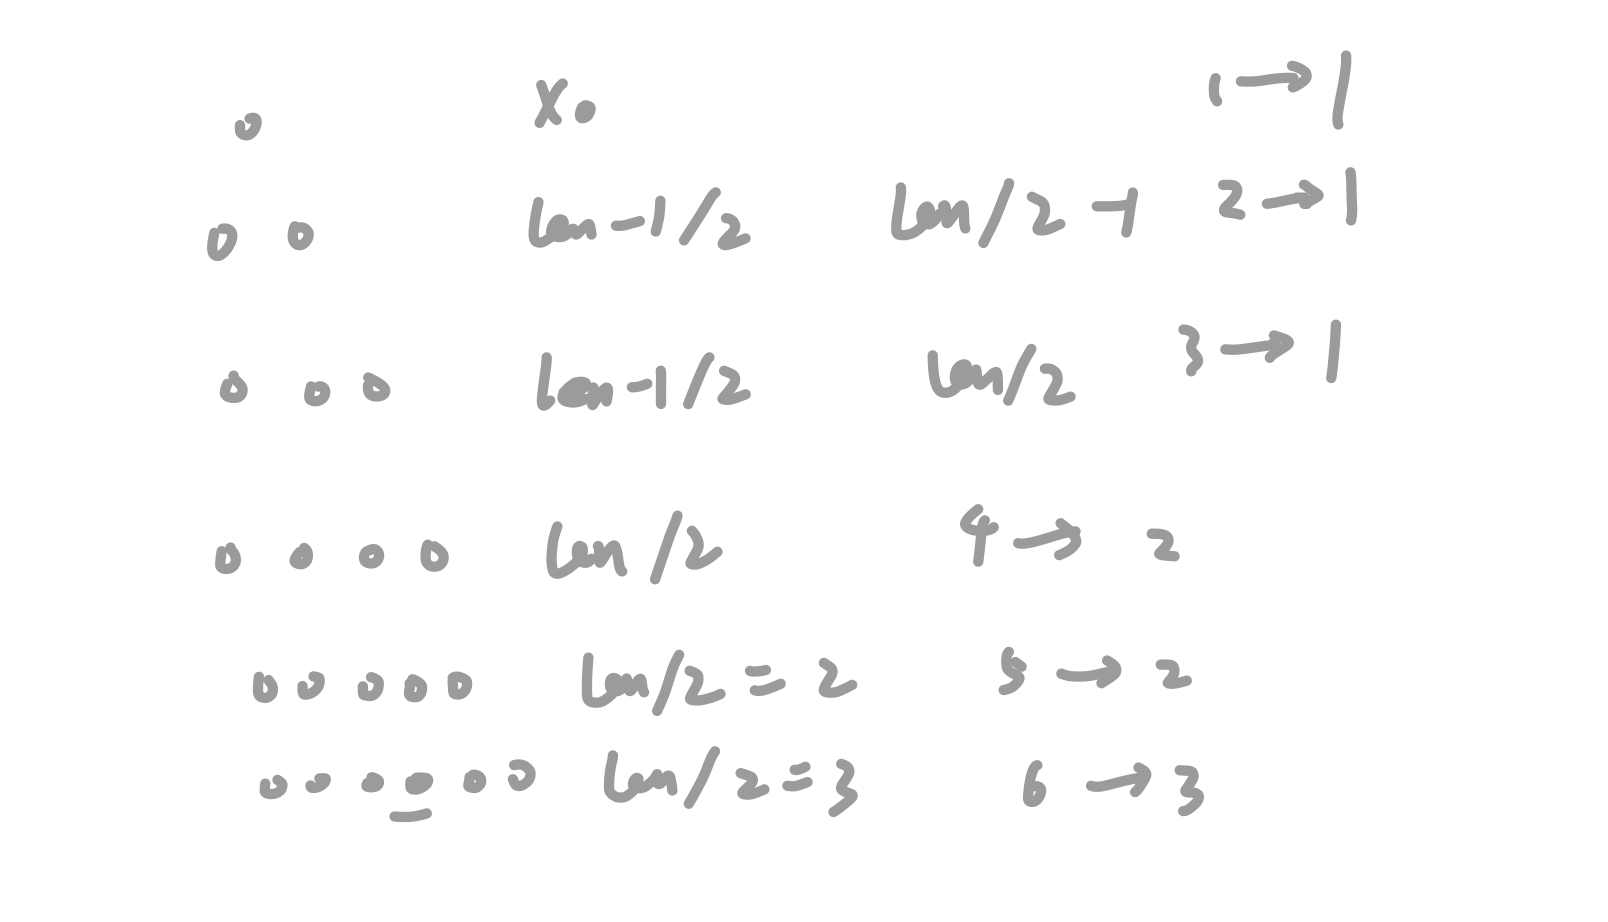 o x0 1 → 1
o o len-1/2 len/2 -1 2 → 1
o o o len-1/2 len/2 3 → 1
o o o o len/2 4 → 2
o o o o o len/2 = 2 5 → 2
o o o o o o len/2 = 3 6 → 3